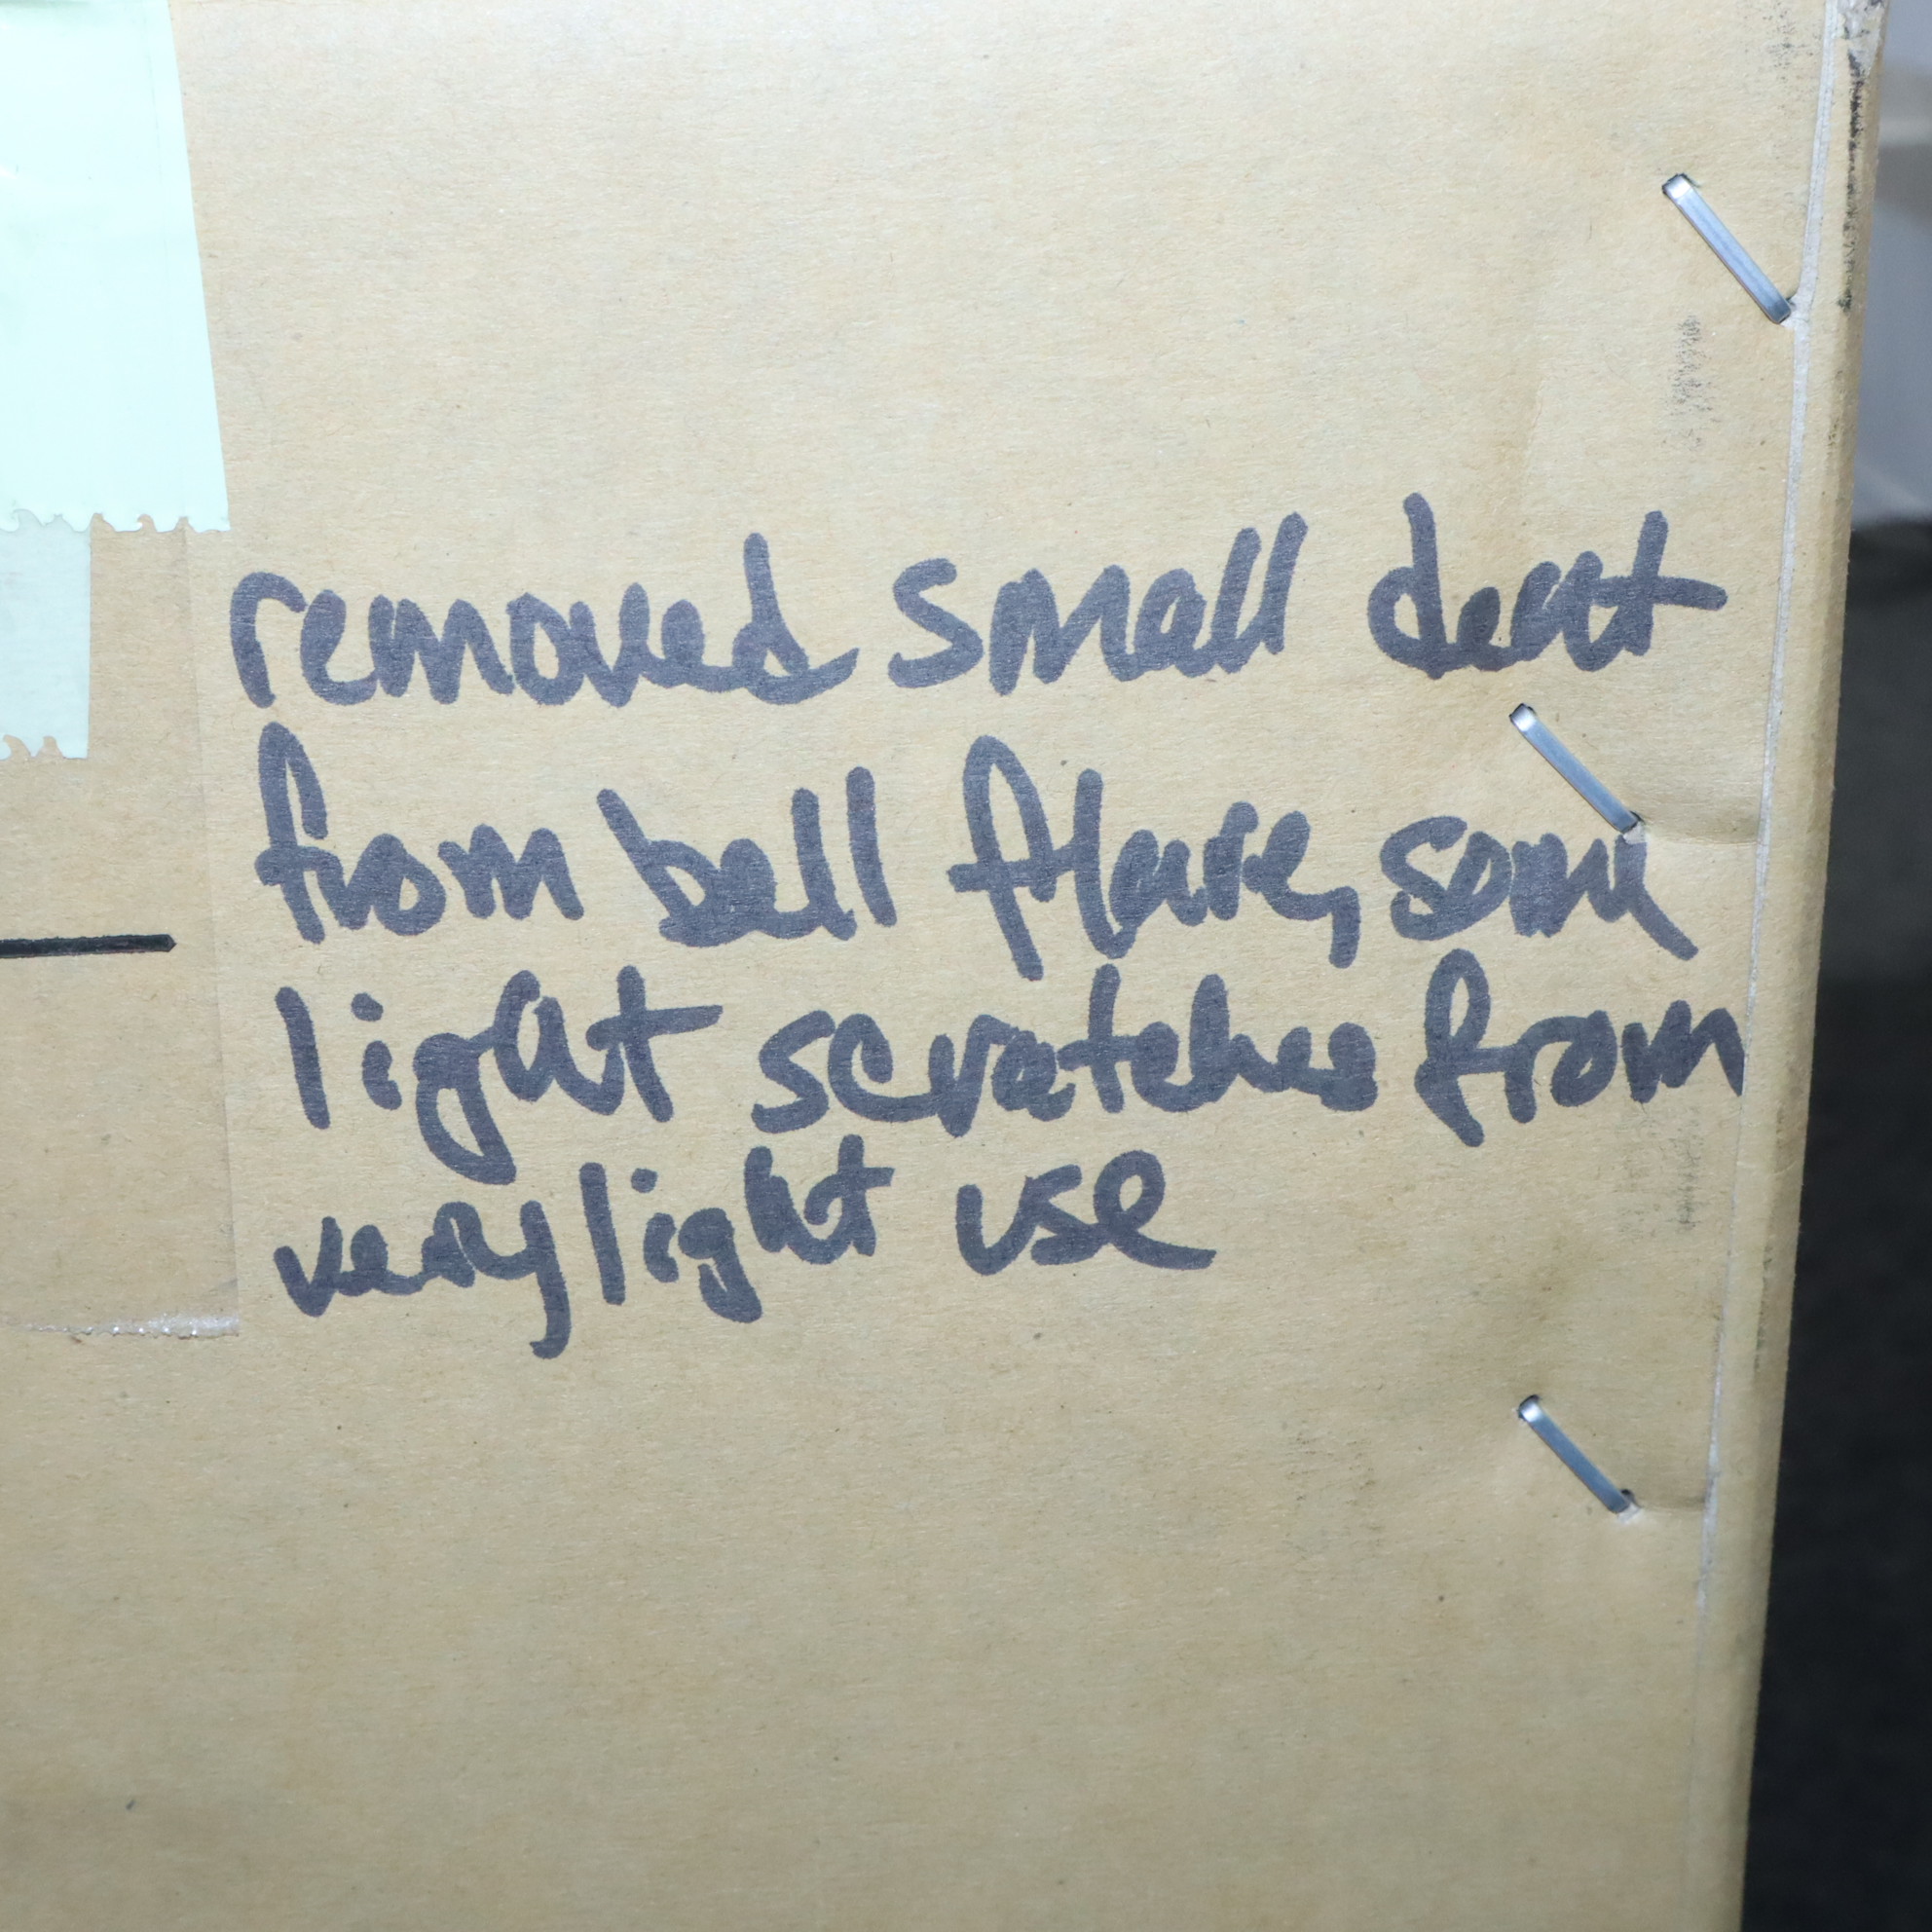 removed small dent
from bell flare, some
light scratches from
very light use